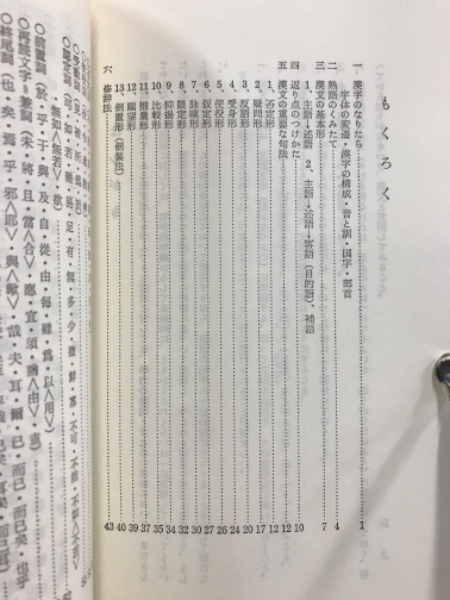 もくろく
一 漢字のなりたち…………1
字体の変遷・漢字の構成・音と訓・国字・部首
二 熟語のくみたて…………4
三 漢文の基本形…………7
1、主語→述語 2、主語→述語→客語(目的語)、補語
四 返り点のつけかた…………10
五 漢文の重要な句法…………12
1、否定形…………12
2、疑問形…………17
3、反語形…………20
4、受身形…………24
5、使役形…………26
6、仮定形…………27
7、詠嘆形…………30
8、限定形…………32
9、抑揚形…………34
10、比較形…………35
11、推量形…………37
12、願望形…………39
13、倒置形(倒装法)…………40
六 修辞法…………43
無如<無若> 故)
○前置詞(於・乎・于・與・及・自・從・由・毎・雖・爲・以<用>
○再読文字=兼詞(未・將・且・當<合>・應・宜・須・猶<由>・盍)
○終尾詞(也・矣・焉・乎・邪<耶>・與<歟>・哉・夫・耳・爾・已・而已・而已矣・也乎